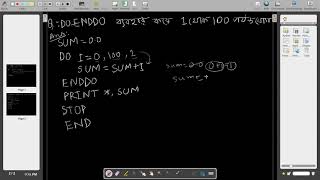 Q: DO ENDDO ব্যবহার করে 1 থেকে 100 পর্যন্ত
Ans:
SUM = 0.0
DO I=0, 100, 2
SUM = SUM+I
ENDDO
PRINT *, SUM
STOP
END
sum=0.0
sum=